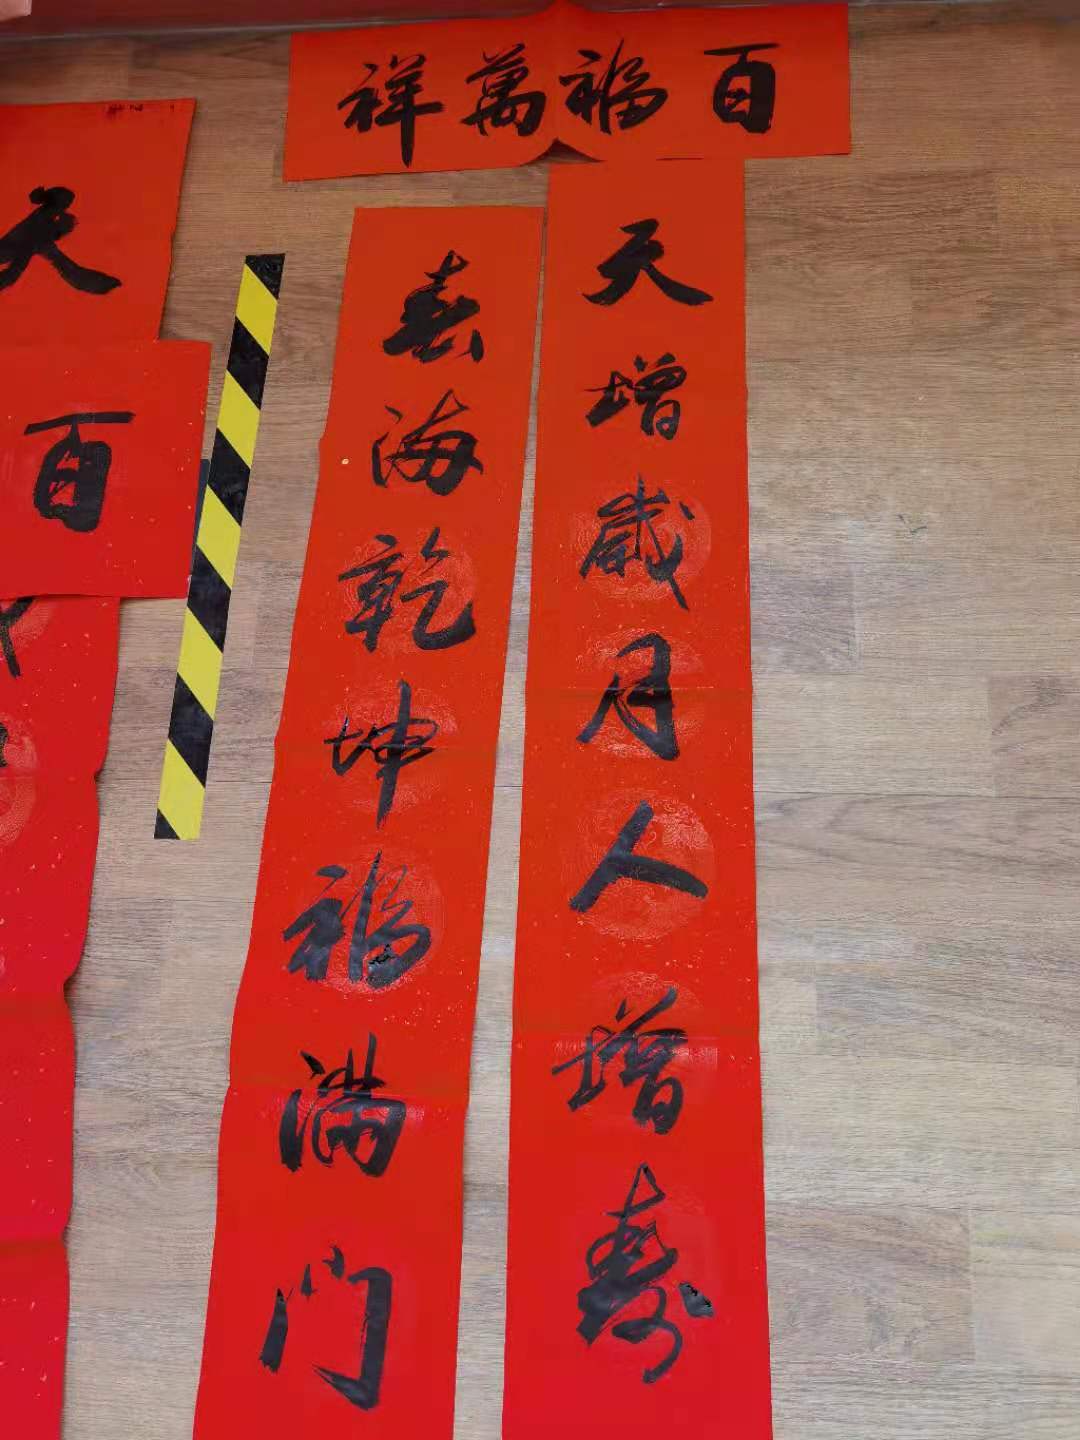 百福萬祥
天增歲月人增壽
春海乾坤福满门
天
百